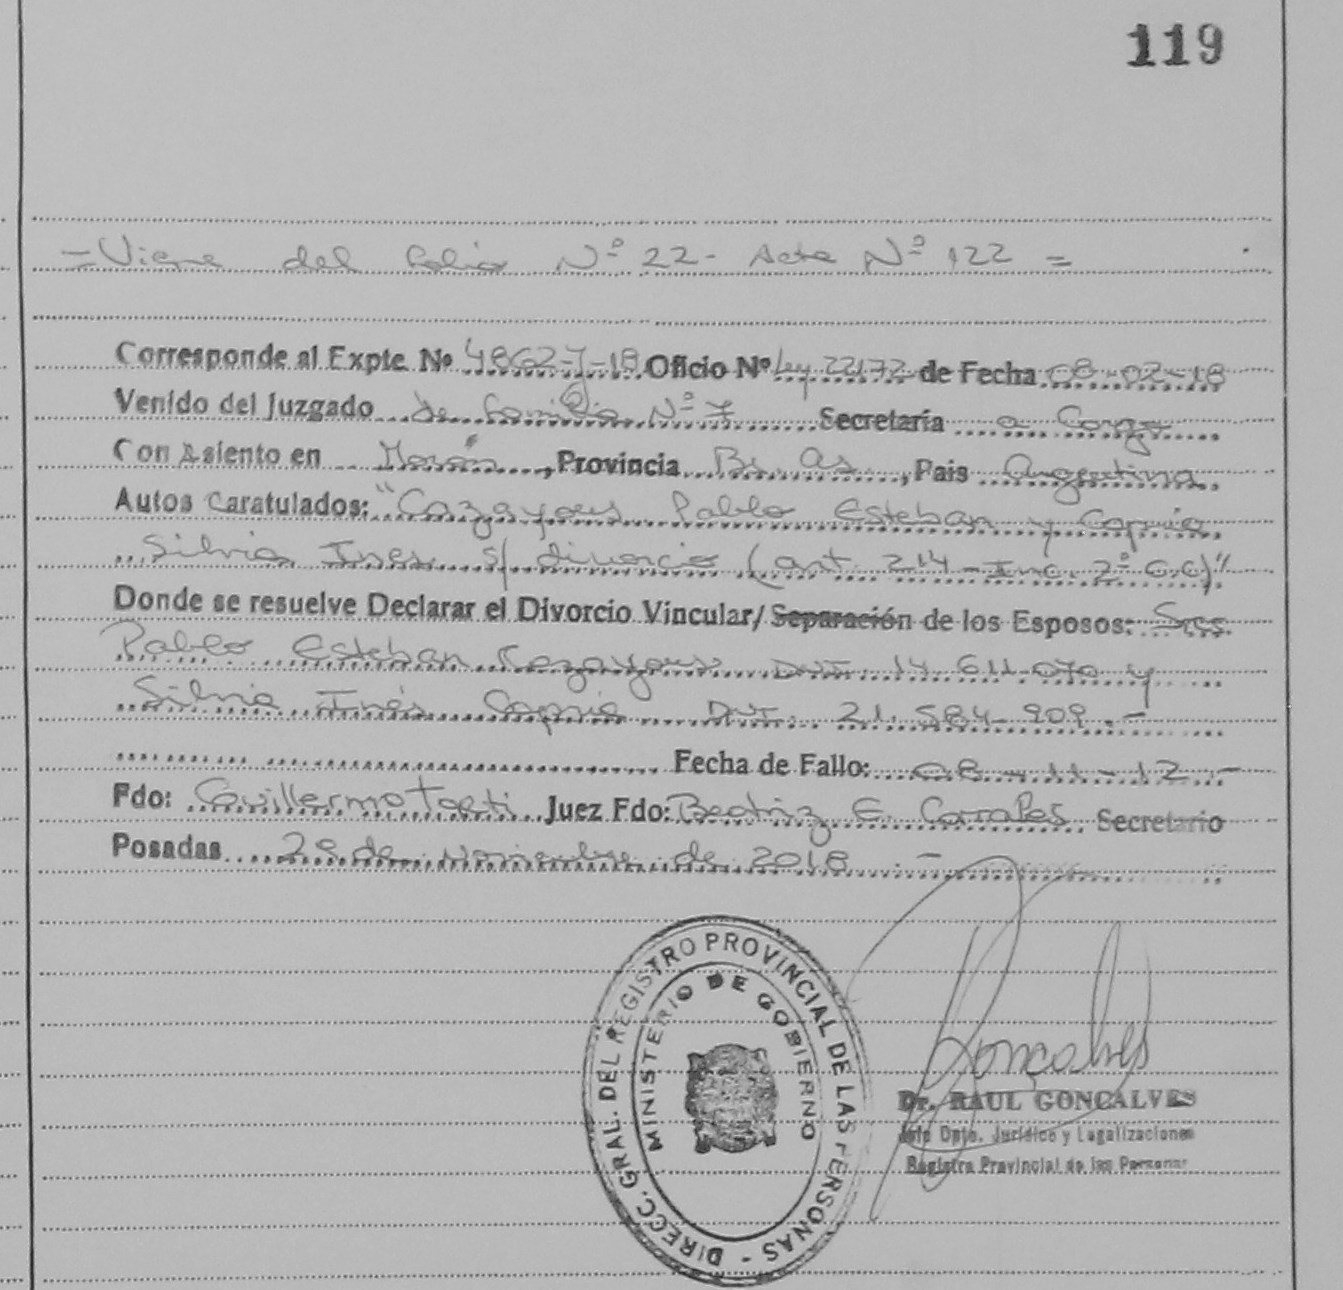 119
= Viene del folio Nº 22 - Acta Nº 122 =
Corresponde al Expte. Nº 4862-J-18 Oficio Nº Ley 22172 de Fecha 08-02-18
Venido del Juzgado de Familia Nº 7 Secretaría a Cargo
Con Asiento en Morón, Provincia Bs. As., Pais Argentina
Autos Caratulados: " Pablo Esteban y
Silvia Inés s/ divorcio (art. 214 - Inc. 2º C.C)"
Donde se resuelve Declarar el Divorcio Vincular/ Separación de los Esposos: Sres.
Pablo Esteban DNI. 14.611.070 y
Silvia Inés DNI. 21.584.909.-
Fecha de Fallo: 08-11-12.-
Fdo: Guillermo Torti Juez Fdo: Beatriz E. Corrales Secretario
Posadas 28 de Noviembre de 2018.-
DIRECC. GRAL. DEL REGISTRO PROVINCIAL DE LAS PERSONAS -
MINISTERIO DE GOBIERNO
Goncalves
Dr. RAUL GONCALVES
Jefe Dpto. Jurídico y Legalizaciones
Registro Provincial de las Personas